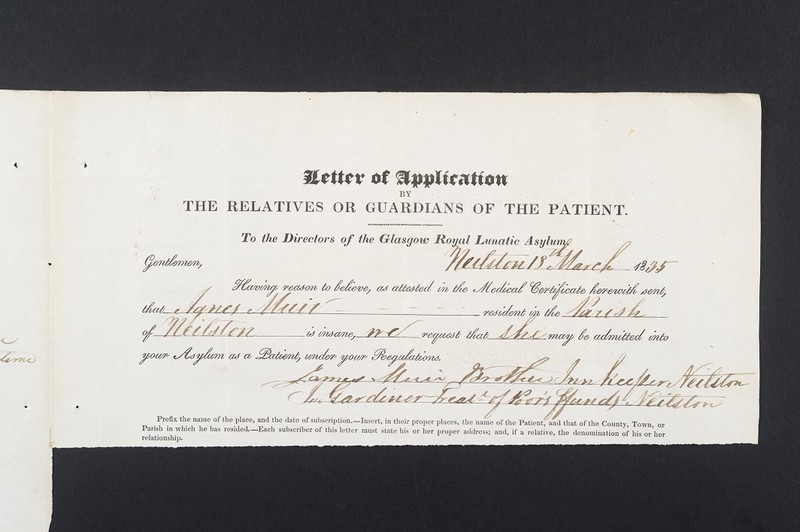 Letter of Application
BY
THE RELATIVES OR GUARDIANS OF THE PATIENT.
To the Directors of the Glasgow Royal Lunatic Asylum.
Neilston 18th March 1835
Gentlemen,
Having reason to believe, as attested in the Medical Certificate herewith sent,
that Agnes Muir resident in the Parish
of Neilston is insane, we request that She may be admitted into
your Asylum as a Patient, under your Regulations.
James Muir Brother Inn Keeper Neilston
Gardiner Treasr of Poor's Funds Neilston
Prefix the name of the place, and the date of subscription.—Insert, in their proper places, the name of the Patient, and that of the County, Town, or
Parish in which he has resided.—Each subscriber of this letter must state his or her proper address; and, if a relative, the denomination of his or her
relationship.